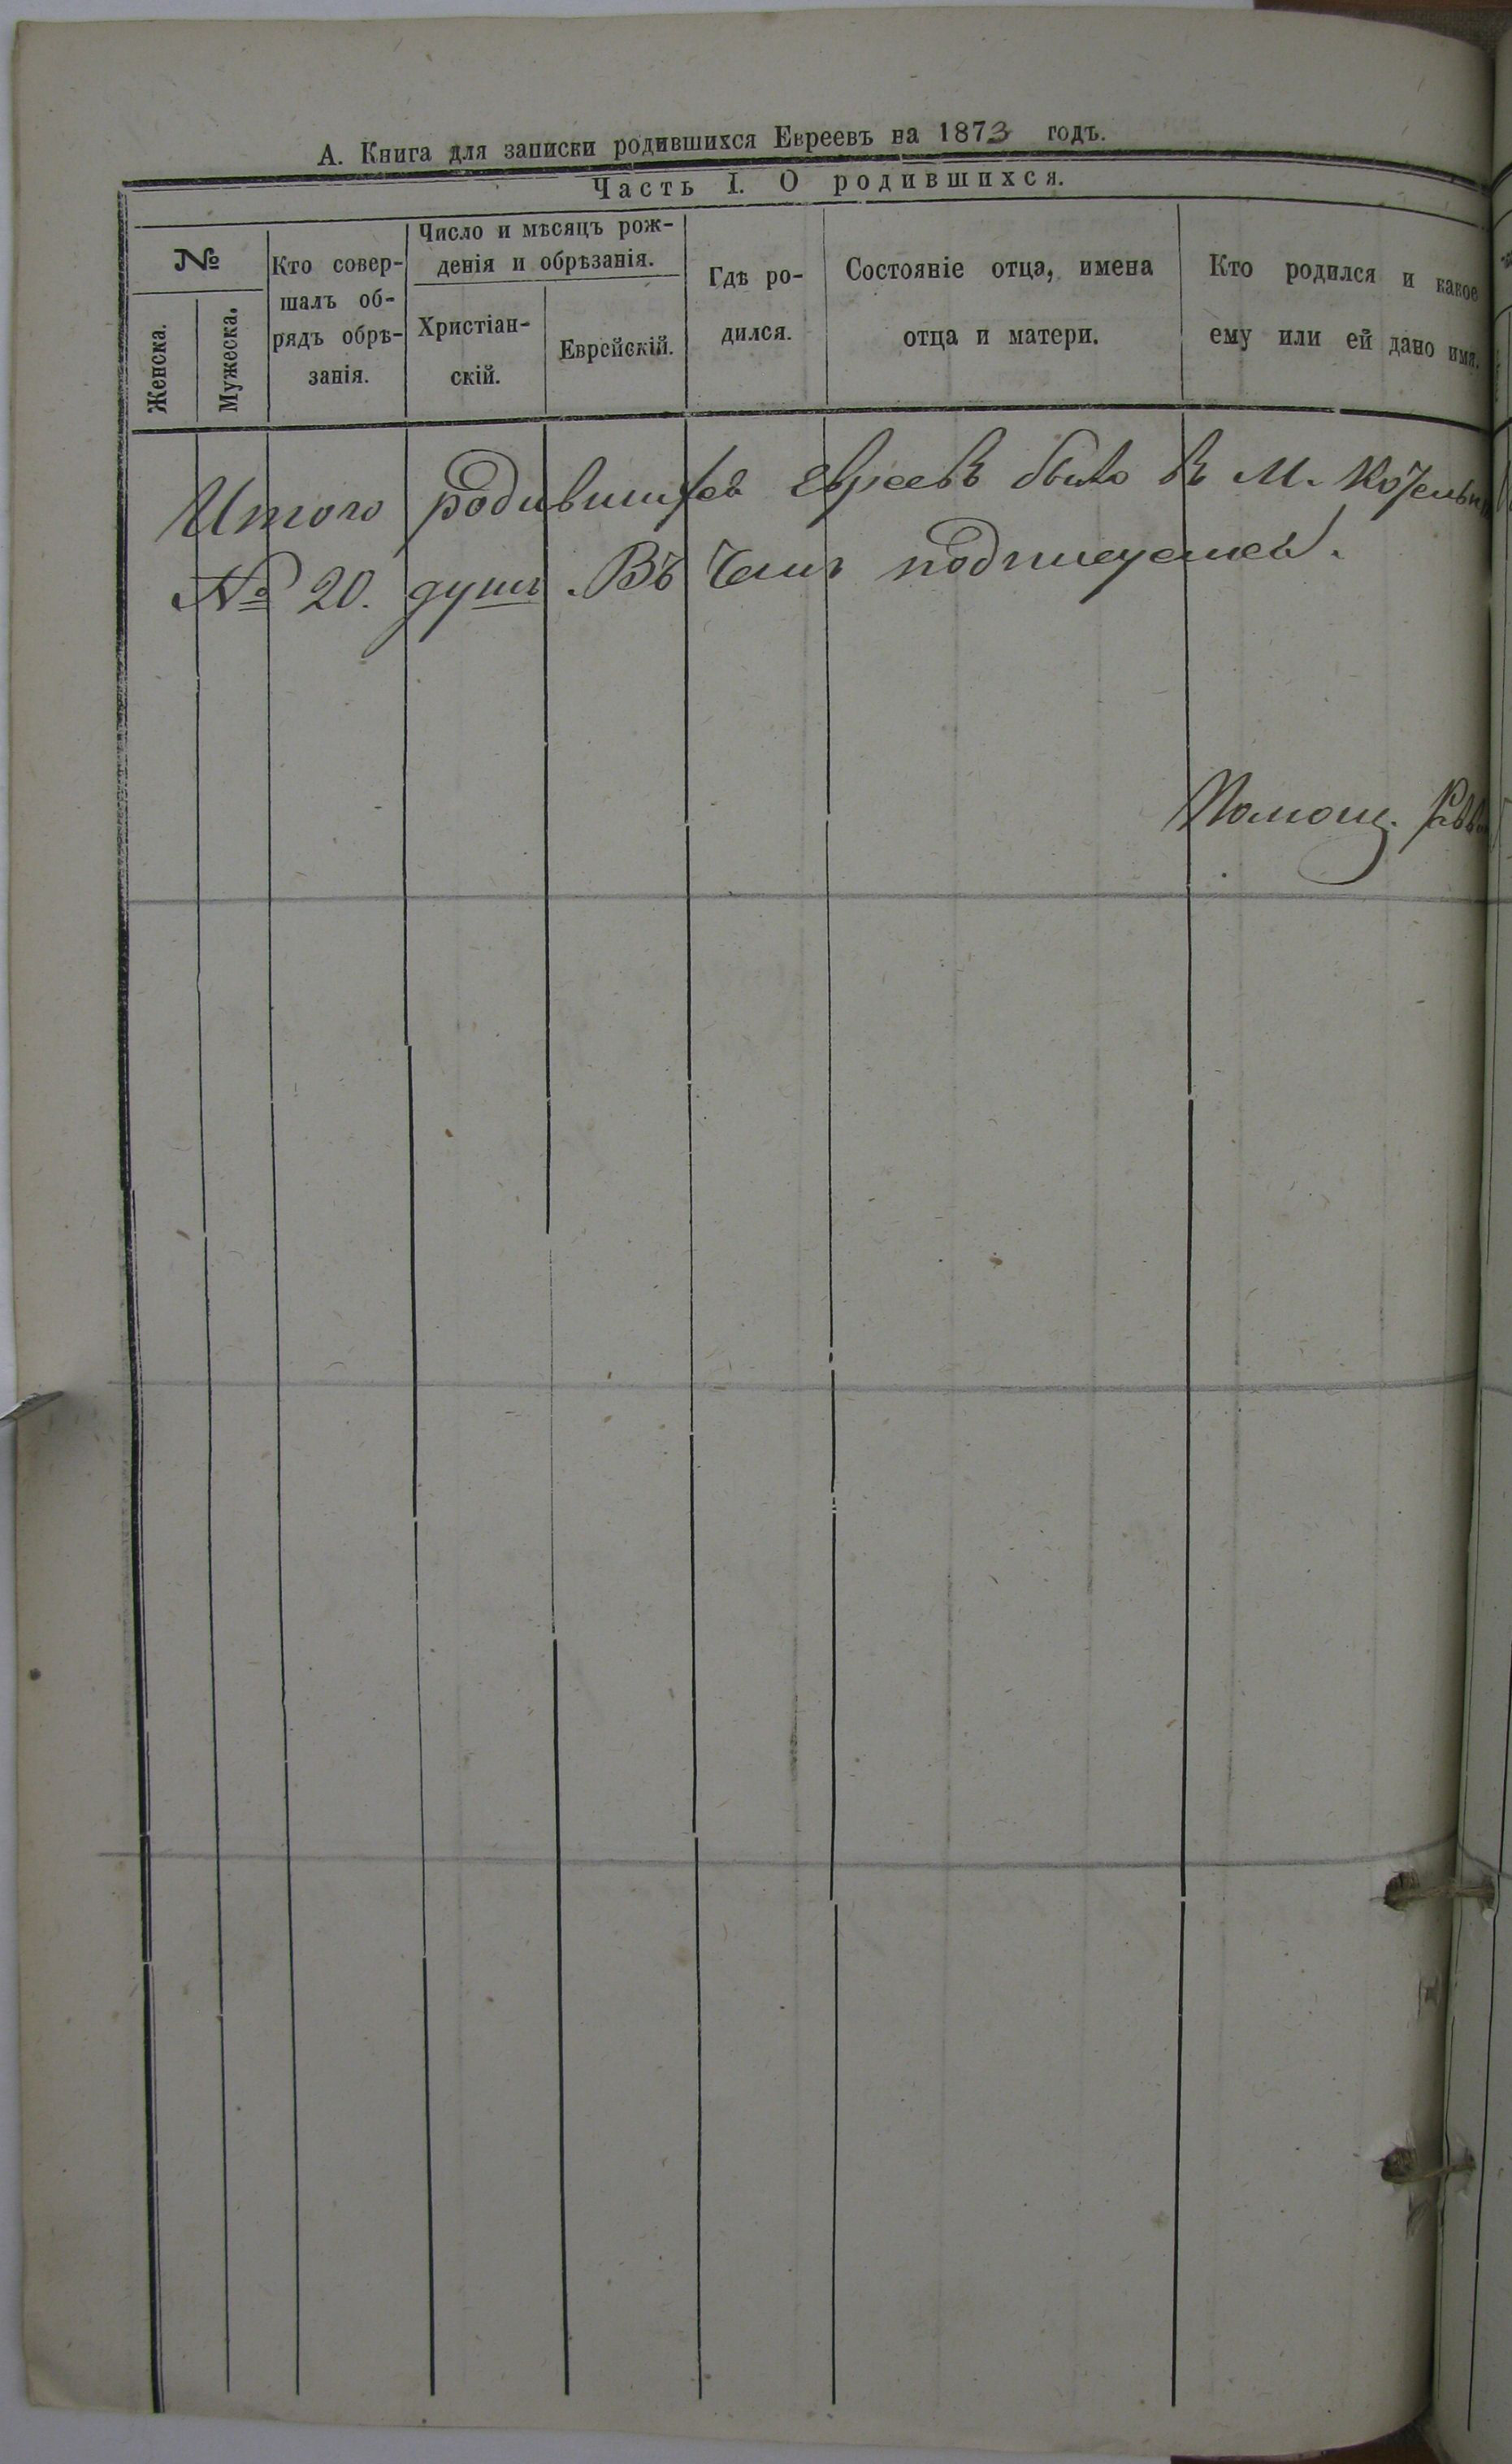 А. Книга для записки родившихся Евреевъ на 1873 годъ.
Часть I. О родившихся.
№
Женска.
Мужеска.
Кто совер-
шалъ об-
рядъ обрѣ-
занія.
Число и мѣсяцъ рож-
денія и обрѣзанія.
Христіан-
скій.
Еврейскій.
Гдѣ ро-
дился.
Состояніе отца, имена
отца и матери.
Кто родился и какое
ему или ей дано имя.
Итого родившихся Евреевъ было въ М.
№ 20. душъ. Въ чемъ подписуемся.
Помощ.